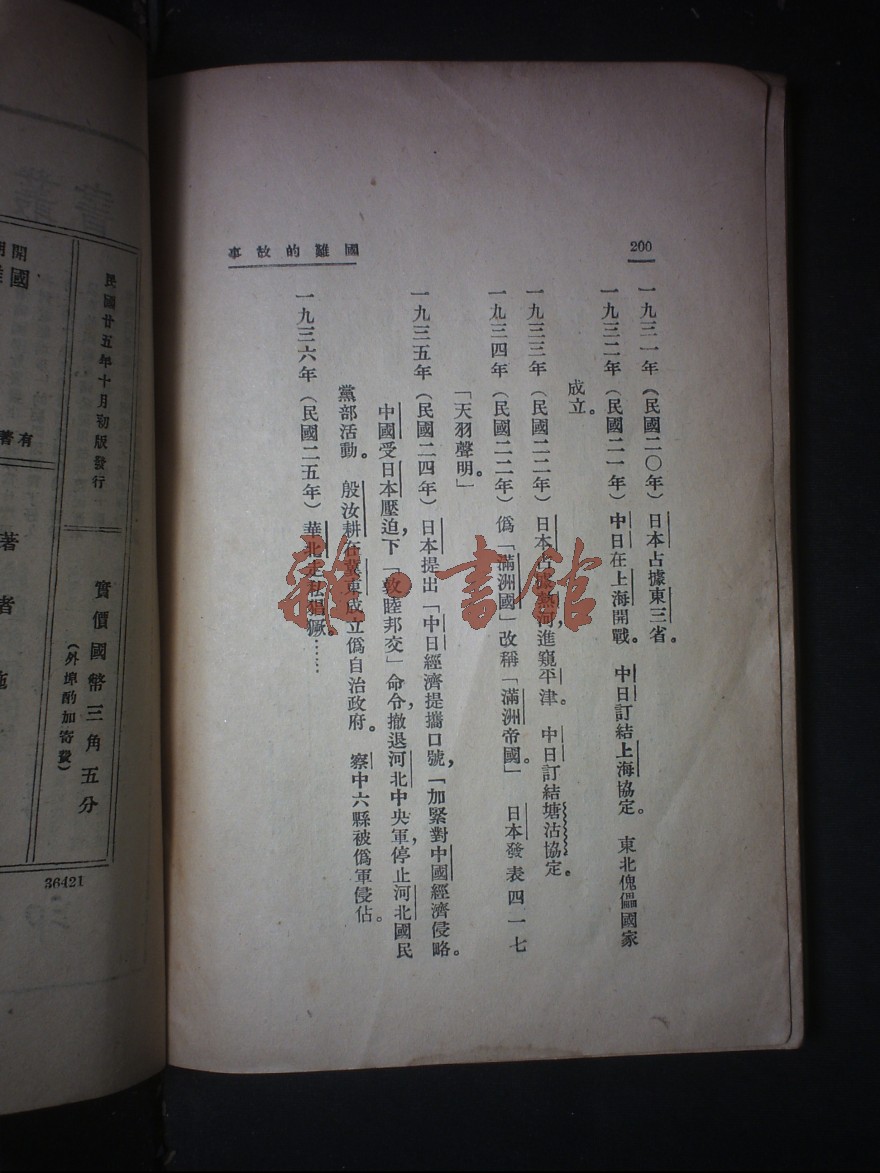 200
國難的故事
一九三一年（民國二〇年）日本占據東三省。
一九三二年（民國二一年）中日在上海開戰。　中日訂結上海協定。　東北傀儡國家
成立。
一九三三年（民國二二年）日本占據熱河，進窺平津。　中日訂結塘沽協定。
一九三四年（民國二二年）僞「滿洲國」改稱「滿洲帝國」。　日本發表四一七
「天羽聲明。」
一九三五年（民國二四年）日本提出「中日經濟提攜口號，「加緊對中國經濟侵略。
中國受日本壓迫，下「敦睦邦交」命令，撤退河北中央軍，停止河北國民
黨部活動。　殷汝耕在冀東成立僞自治政府。　察中六縣被僞軍侵佔。
一九三六年（民國二五年）華北走私猖獗。……
雜·書館
書叢
開明
國
有著
民國廿五年十月初版發行
實價國幣三角五分
（外埠酌加寄費）
著
者
36421